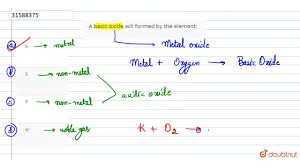 31588375
A basic oxide will formed by the element:
a → metal Metal oxide
Metal + Oxygen → Basic Oxide
→ non-metal
acidic oxide
c → non-metal
d → noble gas K + O2 →
doubtnut